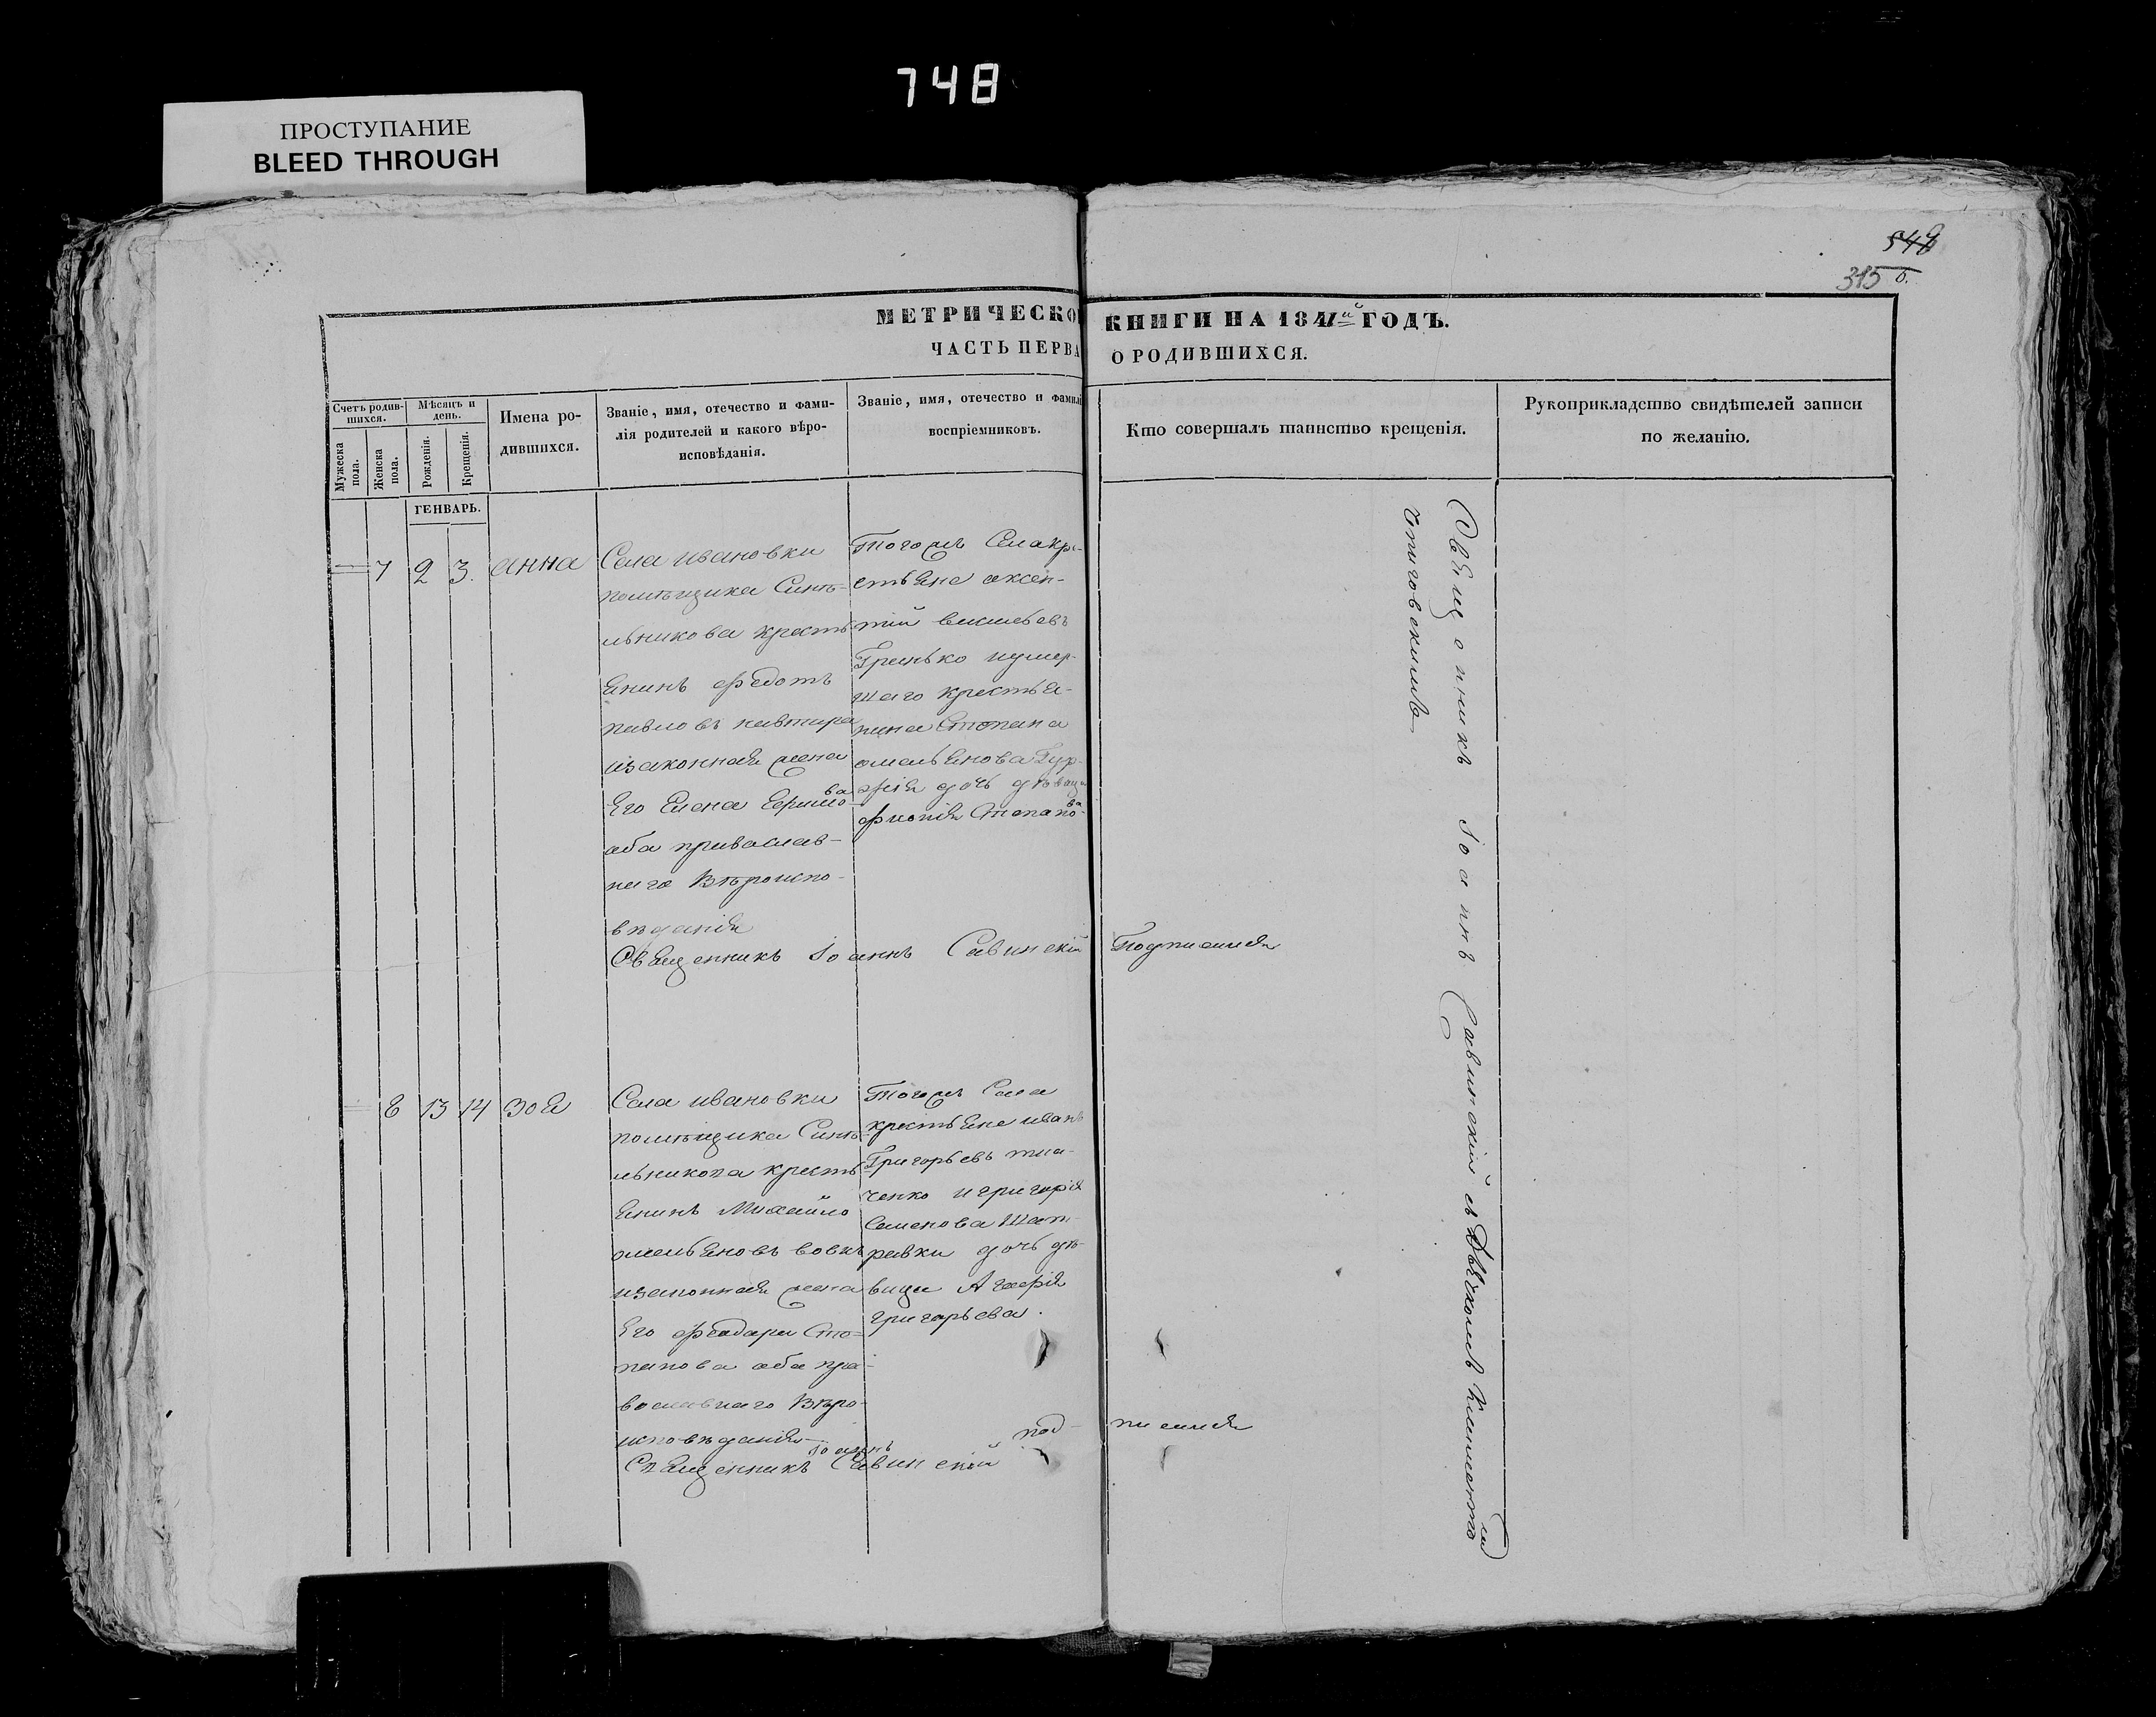 748
ПРОСТУПАНИЕ
BLEED THROUGH
315
МЕТРИЧЕСКО КНИГИ НА 1841й ГОДЪ.
ЧАСТЬ ПЕРВА О РОДИВШИХСЯ.
Счетъ родив-
шихся.
Мужеска
пола.
Женска
пола.
Мѣсяцъ и
день.
Рожденія.
Крещенія.
Имена ро-
дившихся.
Званіе, имя, отечество и фами-
лія родителей и какого вѣро-
исповѣданія.
Званіе, имя, отечество и фамилі
воспріемниковъ.
Кто совершалъ таинство крещенія.
Рукоприкладство свидѣтелей записи
по желанію.
ГЕНВАРЬ.
7 2 3. анна
Села ивановки
помѣщика Синѣ-
льникова кресть
янинъ федотъ
павловъ
изаконная жена
Его Елена
ва
аба православ-
наго Вѣроиспо-
вѣданія
Тогожъ Села кре-
стьяне аксен-
тій
Гринько иумер-
шаго крестья-
нина Степана
омельянова
дочь дѣвица
Степано-
ва
Священникъ Іоаннъ Савинскій Подписался
8 13 14 Зоя
Села ивановки
помѣщика Синѣ-
льникова кресть
янинъ Михайло
омельяновъ вовкъ
изаконная жена
Его феодора Сте-
панова аба пра-
вославнаго Вѣро-
исповѣданія
Тогожъ Села
крестьяне иванъ
Григорьевъ
ченко игригорія
Семенова
дочь дѣ-
вица
григорьева.
Іоаннъ
Священникъ Савинскій под- писался
Священникъ Іоаннъ Савинскій